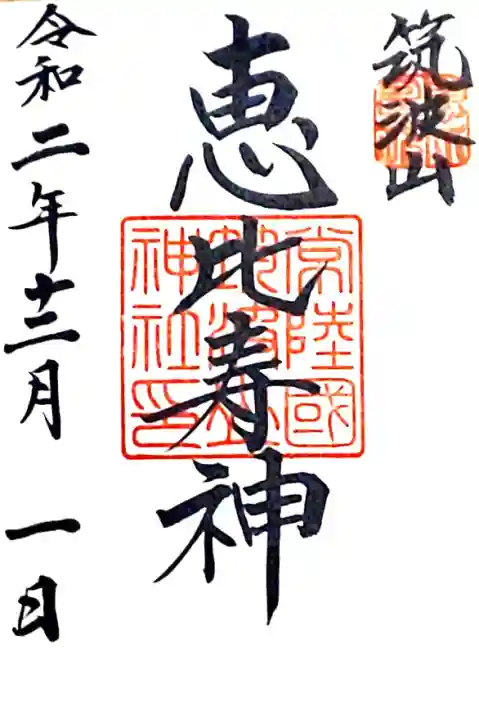 筑波山
恵比寿神
常陸國
筑波山
神社印
令和二年十二月 一日